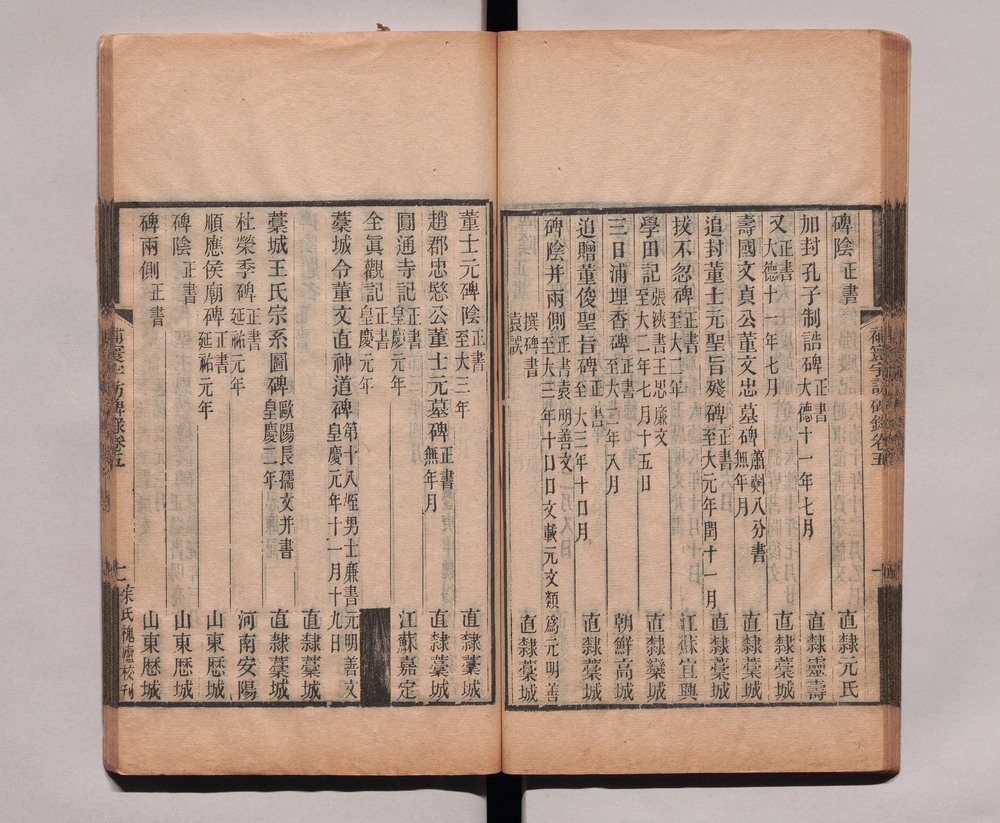 碑陰 正書 直隸元氏
加封孔子制誥碑 正書 大德十一年七月 直隸靈壽
又 正書 大德十一年七月 直隸藁城
壽國文貞公董文忠墓碑 蕭㪺八分書 無年月 直隸藁城
追封董士元聖旨殘碑 正書 至大元年閏十一月 直隸藁城
拔不忽碑 正書 至大二年 江蘇宜興
學田記 張淡書王思廉文 至大二年七月十五日 直隸欒城
三日浦埋香碑 正書 至大二年八月 朝鮮高城
追贈董俊聖旨碑 正書 至大三年十口月 直隸藁城
碑陰并兩側 正書袁明善文 至大三年十口口文載元文類為元明善
撰碑書袁誤 直隸藁城
董士元碑陰 正書 至大三年 直隸藁城
趙郡忠愍公董士元墓碑 正書 無年月 直隸藁城
圓通寺記 正書 皇慶元年 江蘇嘉定
全眞觀記 正書 皇慶元年
藁城令董文直神道碑 第十八姪男士廉書元明善文 皇慶元年十一月十九日
直隸藁城
藁城王氏宗系圖碑 歐陽長孺文并書 皇慶二年 直隸藁城
杜榮季碑 正書 延祐元年 河南安陽
順應侯廟碑 正書 延祐元年 山東歷城
碑陰 正書 山東歷城
碑兩側 正書 山東歷城
補寰宇訪碑錄卷五
一
補寰宇訪碑錄卷五
二
朱氏槐廬校刊